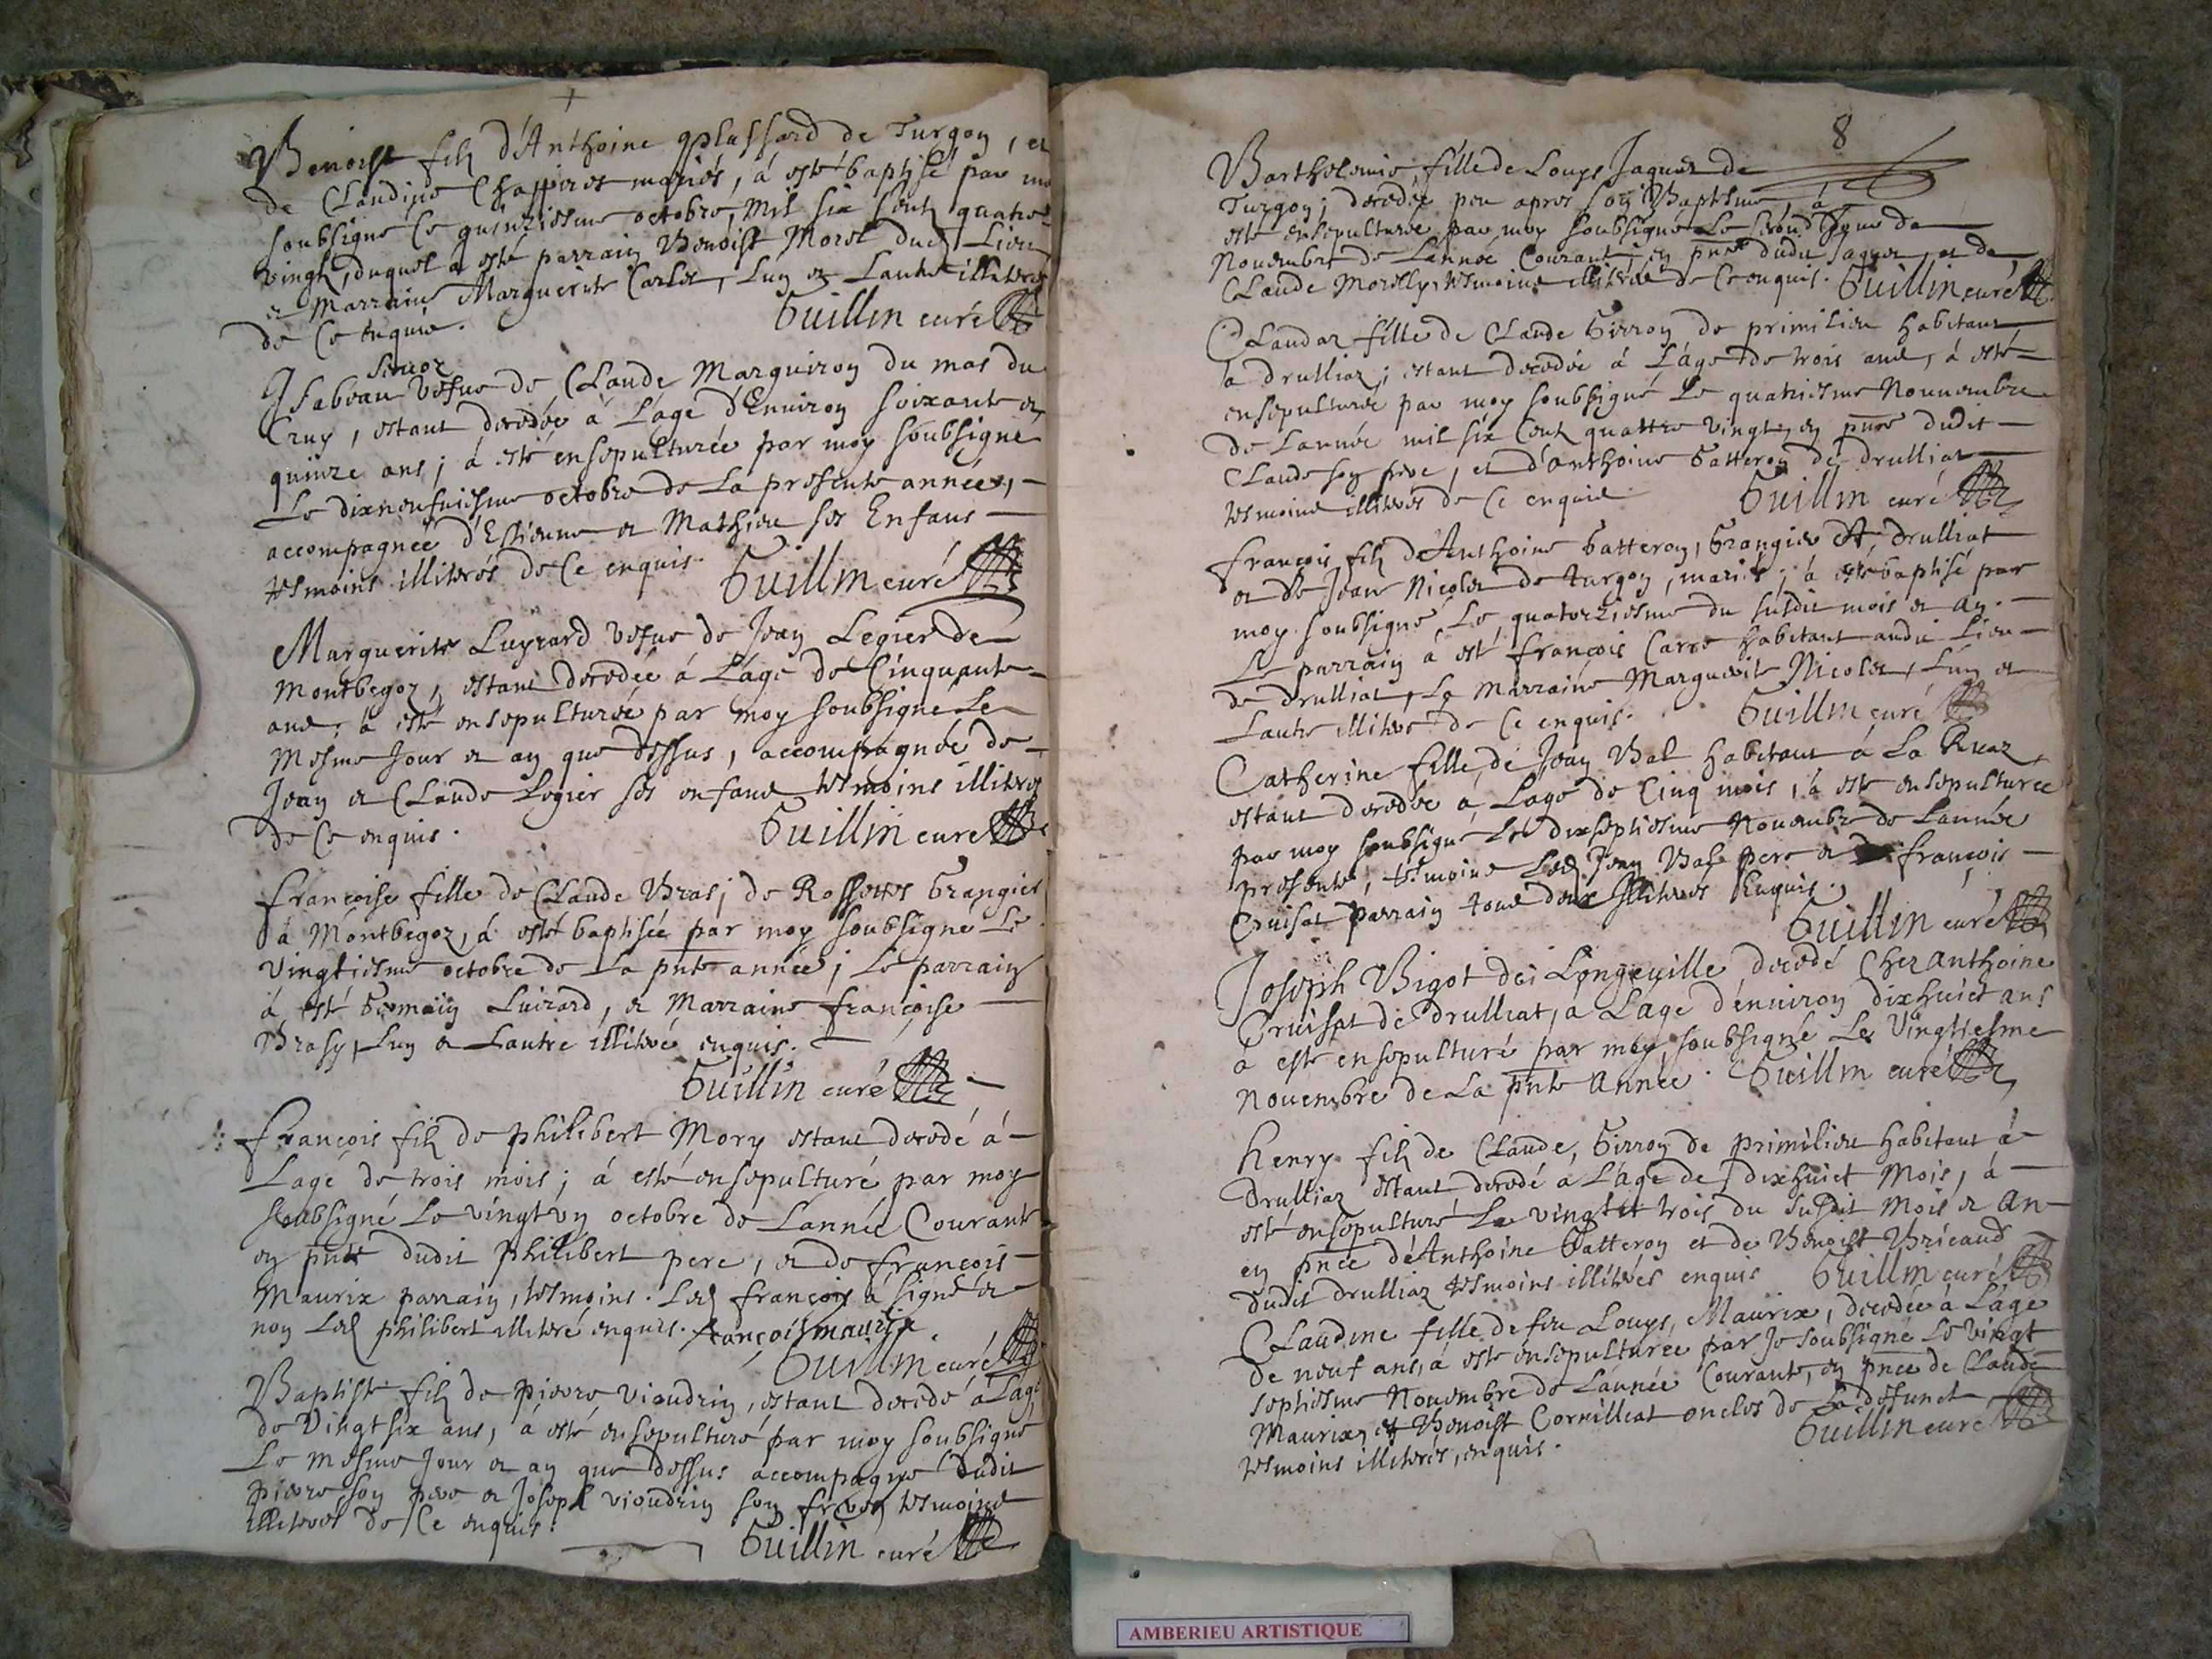 Benoist filz d'Anthoine Plassard de Turgon, et
de Claudine Chappiron mariés, à esté baptisé par moy
soubsigné ce quinziesme octobre, mil six centz quatre
vingtz, duquel a esté parrain Benoist Morel dud. Lieu
et Marraine Marguerite Carlet, Lun et Lautre illiterés
de Ce enquis. Guillin curé
Isabeau vefue de Claude Marguiron du mas du
Cruy, estant decedée à L'age d'Enuiron soixante et
quinze ans; à esté ensepulturée par moy soubsigné
Le dixneufuiesme octobre de La presente année,
accompagnée d'Estienne et Mathieu ses Enfans
tesmoins illiterés de Ce enquis. Guillin curé
Marguerite Luyrard vefue de Jean Legier de
Montbegoz, estant decedée à L'àge de Cinquante
ans; à esté ensepulturée par moy soubsigné Le
Mesme Jour et an que dessus, accompagnée de
Jean et Claude Legier ses enfans tesmoins illiterés
de Ce enquis. Guillin curé
Francoise fille de Claude Bras, de Rossettes Grangier
à Montbegoz, à esté baptisée par moy soubsigné Le
vingtiesme octobre de La pnte année; Le parrain
à esté Germain Luirard, et Marraine françoise
Brasy, Lun et Lautre illiteré enquis.
Guillin curé
François filz de Philibert Mory estant decedé à
Lagé de trois mois; à esté ensepulturé par moy
soubsigné Le vingt vn octobre de Lannée Courante
en pnce dudit Philibert pere, et de françois
Maurix parrain, tesmoins. Led. françois à signé et
non Led. philibert illiteré enquis. françois maurix
Guillin curé
Baptiste filz de Pierre Vioudrin, estant decedé à Lage
de Vingt six ans, à esté ensepulturé par moy soubsigné
Le mesme Jour et an que dessus accompagné dudit
pierre son pere et Joseph vioudrin son frere tesmoins
illiterés de Ce enquis.
Guillin curé
8
Bartholomie fille de Louys Jaquet de
Turgon; decedée peu apres son Baptesme, à
esté ensepulturée par moy soubsigné Le second Jour de
Nouembre de Lannée Courante; en pnce dudit Jaquet, et de
Claude Morelly, tesmoins illiterés de Ce enquis. Guillin curé
Claudaz fille de Claude Girron de primilieu habitant
a Drulliaz; estant decedée à L'age de trois ans, à esté
ensepulturée par moy soubsigné Le quatriesme Nouuembre
de Lannée mil six Cent quattre vingtz, en pnce dudit
Claude son pere, et d'anthoine Gatteron de Drulliat
tesmoins illiterés de Ce enquis. Guillin curé
François filz de Anthoine Gatteron, Grangier A Drulliat
et de Jeane Nicolet de turgon, mariés; à esté baptisé par
moy soubsigné, Le quatorziesme du susdit mois et an.
Le parrain à esté françois Carre habitant audit Lieu
de Drulliat, La Marraine Marguerite Nicolet, Lun et
Lautre illiteré de Ce enquis. Guillin curé
Catherine fille de Jean Bal habitant à La Ruaz
estant decedée à Lage de Cinq mois, à esté ensepulturée
par moy soubsigné Le dixseptiesme Nouembre de Lannée
presente; tesmoins Led. Jean Bal pere et françois
Cruisat parrain tous deux Illiterés Enquis.
Guillin curé
Joseph Bigot de Longeuille decedé Chez anthoine
Cruisat de Drulliat, à Lage d'enuiron dixhuict ans
à esté ensepulturé par moy soubsigné Le Vingtiesme
Nouembre de La pnte année. Guillin curé
Henry filz de Claude, Girron de primilieu habitant à
Drulliaz estant decedé à L'age de dixhuict Mois, à
esté ensepulturé Le vingt et trois du susdit Mois et an
en pnce de Anthoine Gatteron et de Benoist Bricaud
dudit Drulliaz tesmoins illiterés enquis Guillin curé
Claudine fille de feu Louys, Maurix, decedée à L'age
de neuf ans, à esté ensepulturée par Je soubsigné Le vingt
septiesme Nouembre de Lannée Courante, en pnce de Claude
Maurix, et Benoist Cornilliat oncles de La defunct
tesmoins illiterés, enquis. Guillin curé
AMBERIEU ARTISTIQUE